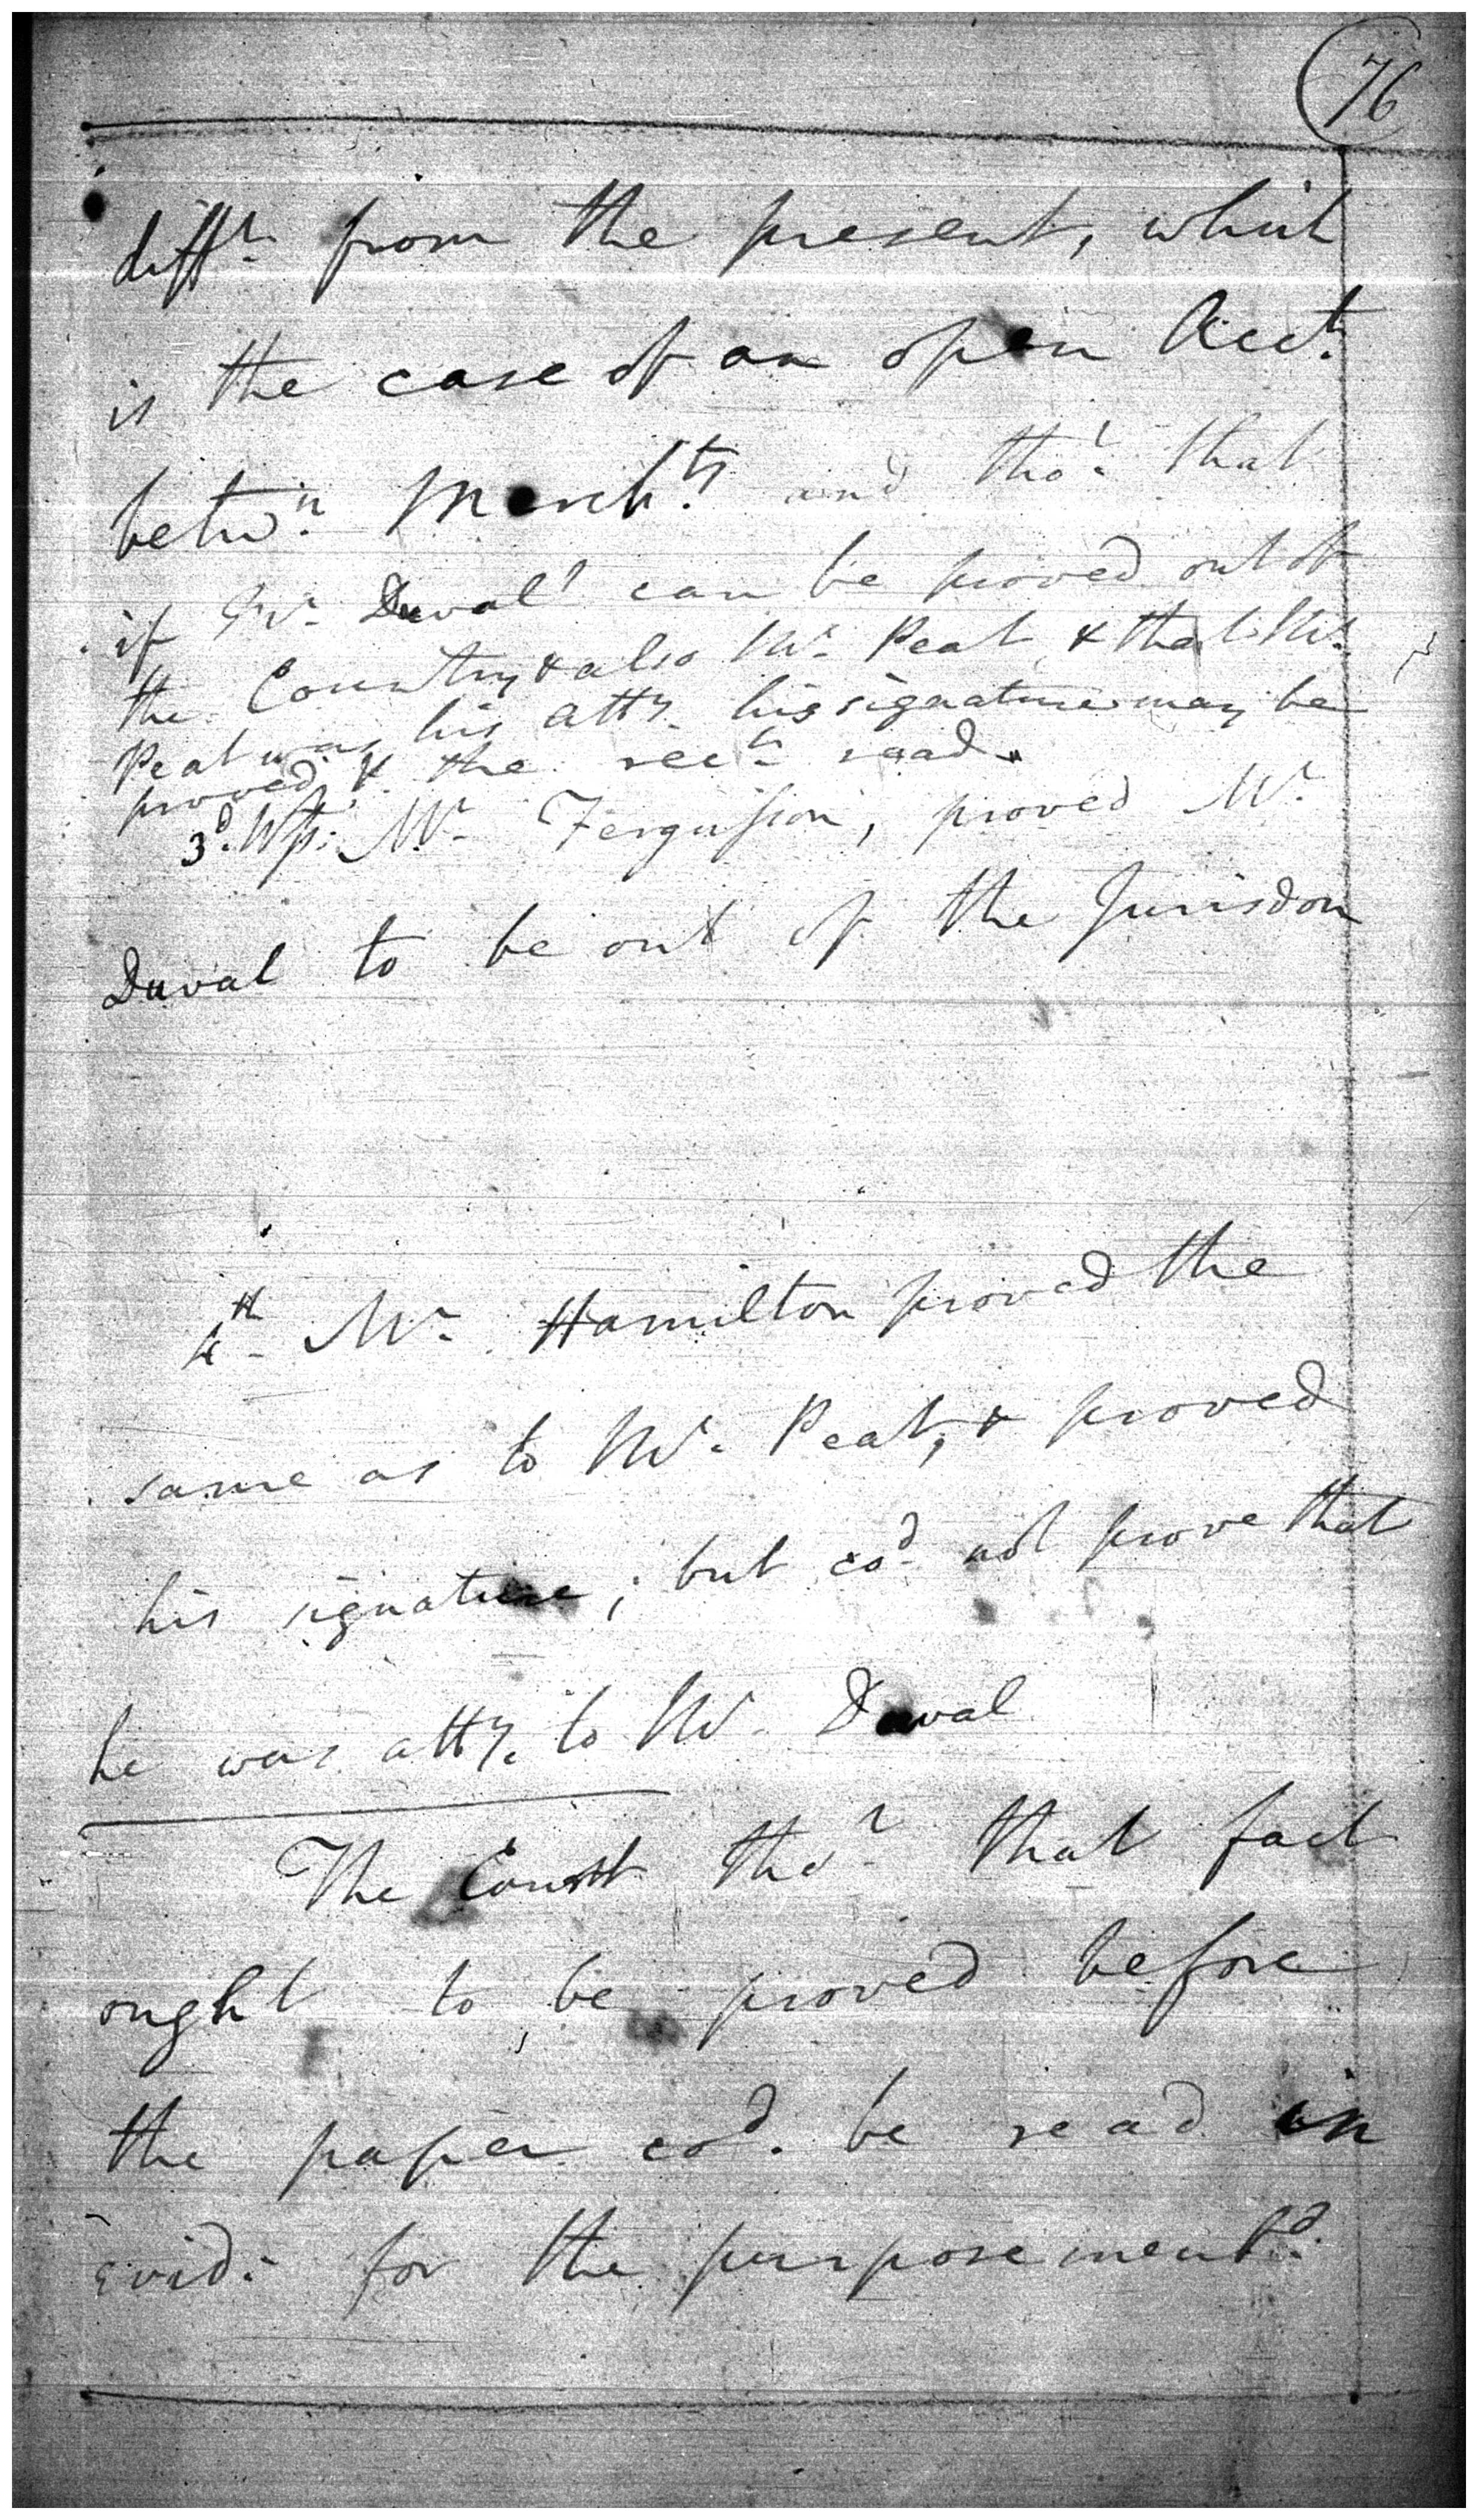 76
difft. from the present, which
is the case of an open Acct.
betwn. Merchts. and thot. that
if Mr. Duval can be proved out of
the Country & also Mr. Peat, & that Mr.
Peat was his atty. his signature may be
proved, & the rect. read.
3d. Wss: Mr. Fergusson, proved Mr.
Duval to be out of the Jurisdon
4th. Mr. Hamilton proved the
same as to Mr. Peat, & proved
his signature; but cod. not prove that
he was atty. to Mr. Duval
The Court thot. that fact
ought to be proved before
the paper cod. be read in
Evid: for the purpose mentd.